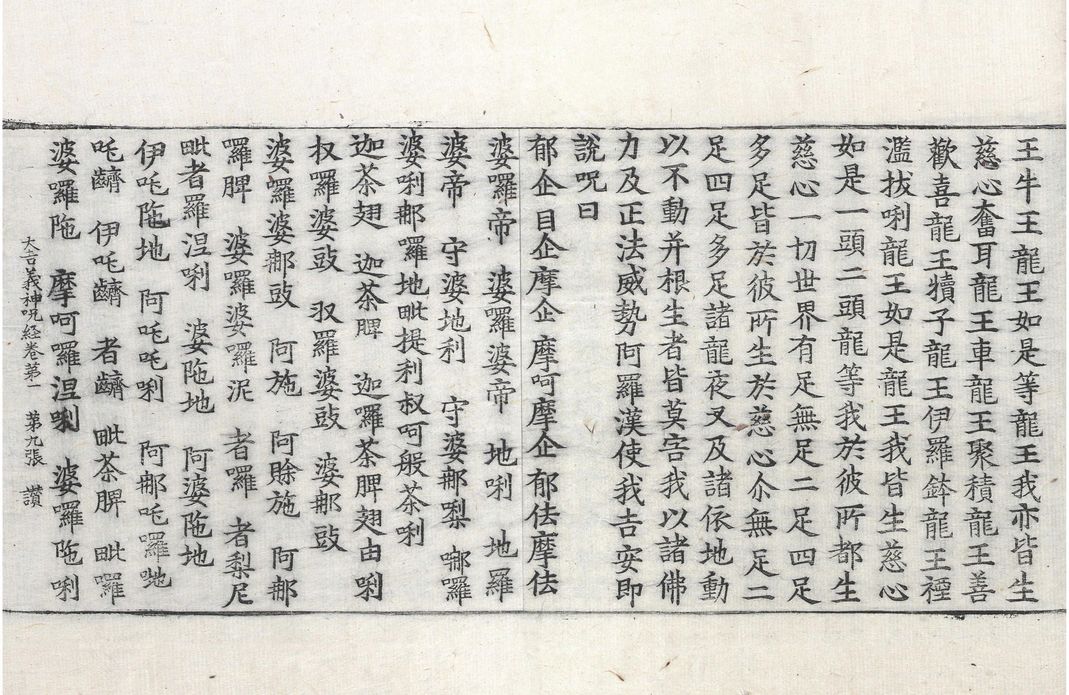 王牛王龍王如是等龍王我亦皆生
慈心奮耳龍王車龍王聚積龍王善
歡喜龍王犢子龍王伊羅鉢龍王
濫拔唎龍王如是龍王我皆生慈心
如是一頭二頭龍等我於彼所都生
慈心一切世界有足無足二足四足
多足皆於彼所生於慈心尒無足二
足四足多足諸龍夜叉及諸依地動
以不動并根生者皆莫害我以諸佛
力及正法威勢阿羅漢使我吉安即
說呪曰
郁企目企摩企 摩呵摩企郁佉摩佉
婆囉帝 婆囉婆帝 地唎 地羅
婆帝 守婆地利 守婆䣛㗚 㖿囉
婆唎䣛囉地毗提利叔呵般茶唎
迦茶翅 迦茶脾 迦囉茶脾翅由唎
杈羅婆豉 杈羅婆豉 婆䣛豉
婆囉婆䣛豉 阿施 阿賒施 阿䣛
囉脾 婆囉婆囉泥 者囉 者梨尼
毗者羅涅唎 婆陁地 阿婆陁地
伊吒陁地 阿吒吒唎 阿䣛吒囉
吒齵 伊吒齵 者齵 毗茶脾 毗囉
婆囉陁 摩呵囉涅唎 婆囉陁唎
大吉義神呪経卷第一 第九張 讚